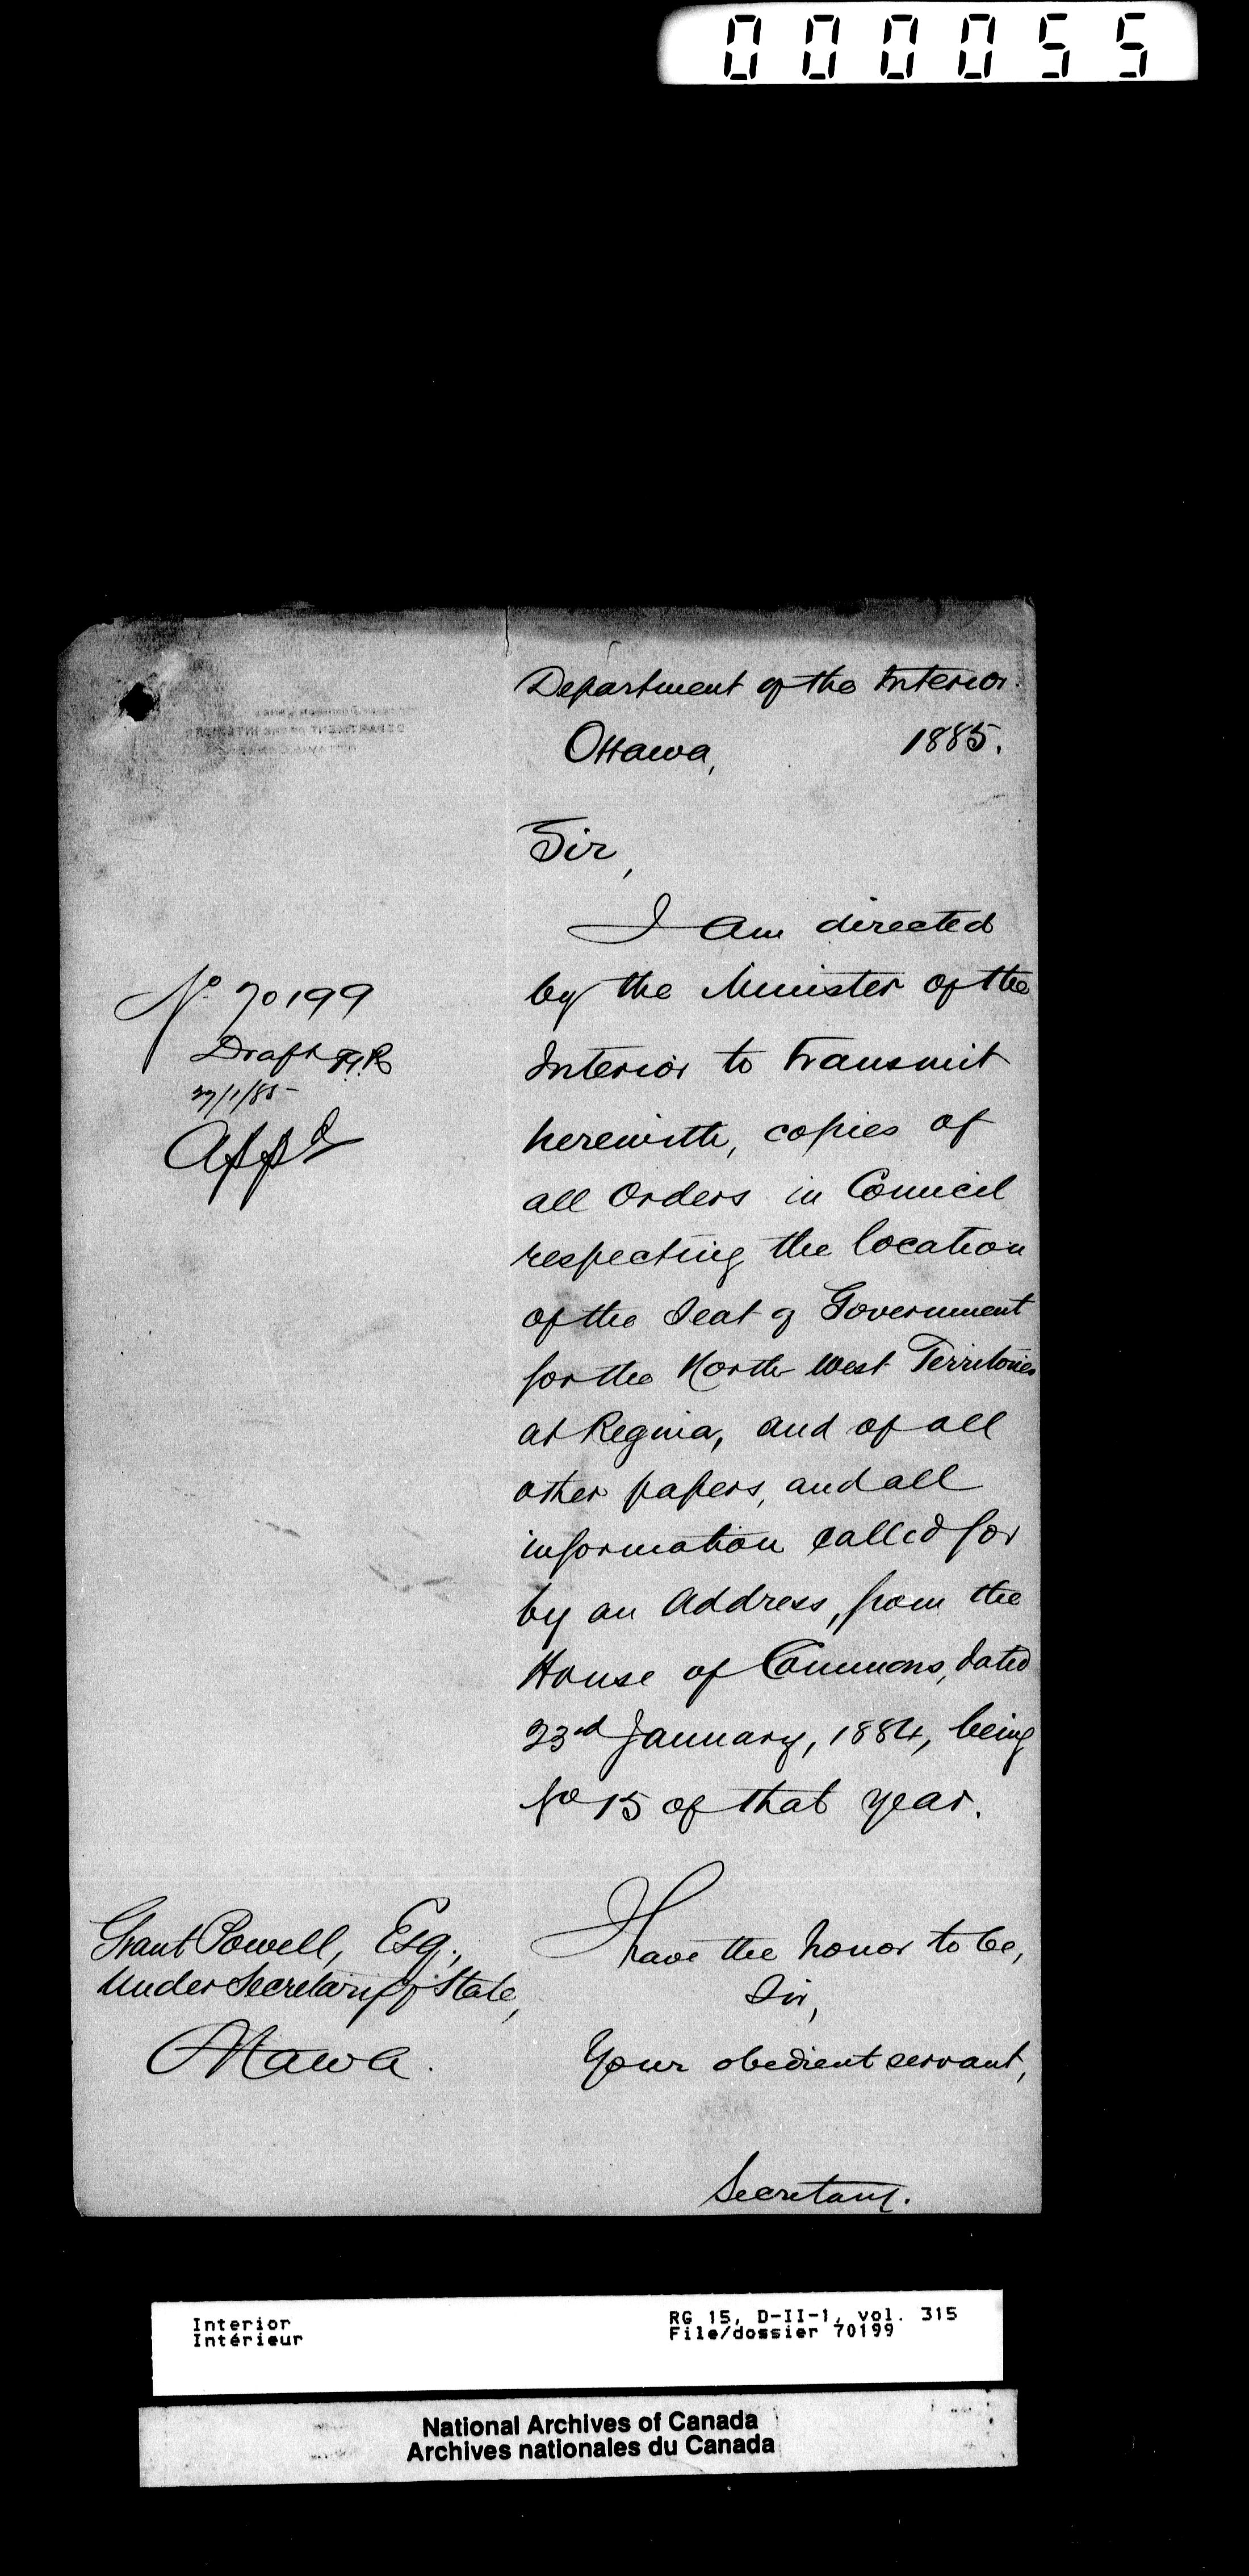 000055
Department of the Interior.
Ottawa, 1885.
Sir,
I am directed
by the Minister of the
Interior to transmit
herewith, copies of
all Orders in Council
respecting the location
of the Seat of Government
for the North West Territories
at Regina, and of all
other papers, and all
information called for
by an Address, from the
House of Commons, dated
23rd January, 1884, being
No 15 of that year.
I have the honor to be,
Sir,
Your obedient servant,
Secretary.
No 70199
Draft
27/1/85
Appd
Grant Powell, Esq.,
Under Secretary of State,
Ottawa.
DEPARTMENT OF THE INTERIOR
Interior
Intérieur
RG 15, D-II-1, vol. 315
File/dossier 70199
National Archives of Canada
Archives nationales du Canada